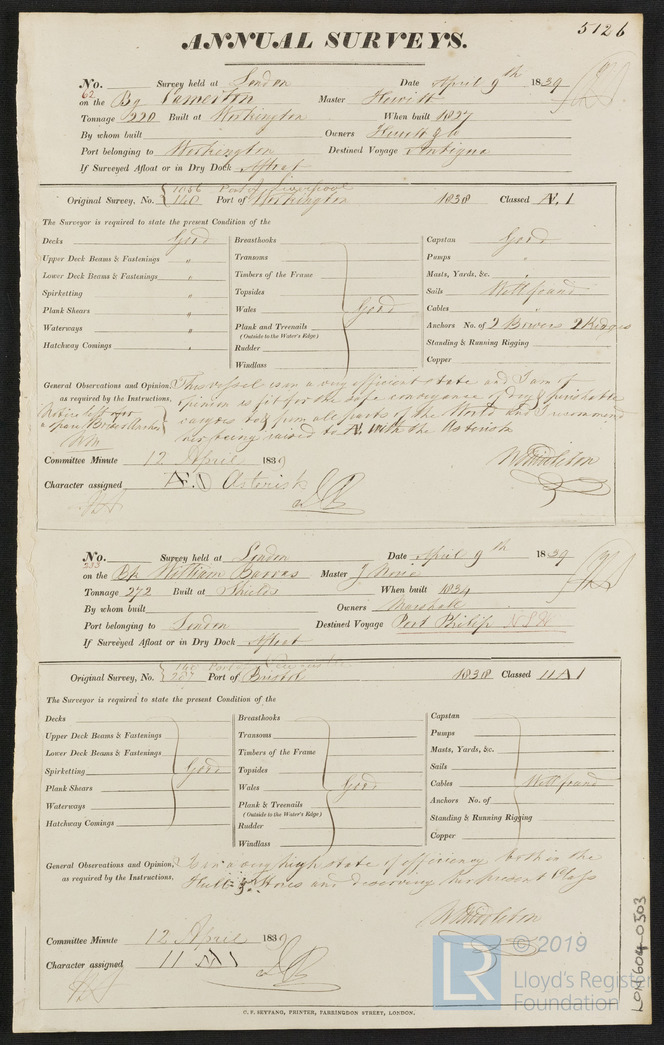 5126
ANNUAL SURVEYS.
No. 62 Survey held at London Date April 9th 1839
on the Bg Camerton Master Hewitt
Tonnage 220 Built at Workington When built 1827
By whom built Owners Hewitt & Co
Port belonging to Workington Destined Voyage Antigua
If Surveyed Afloat or in Dry Dock Afloat
1086 Port of Liverpool
Original Survey, No. 140 Port of Workington 1838 Classed Æ 1
The Surveyor is required to state the present Condition of the
Decks Good Breasthooks Capstan Good
Upper Deck Beams & Fastenings " Transoms Pumps "
Lower Deck Beams & Fastenings " Timbers of the Frame Masts, Yards, &c. "
Spirketting " Topsides Sails Well found
Plank Shears " Wales Good Cables
Waterways " Plank and Treenails Anchors No. of 2 Bowers 2 Kedges
(Outside to the Water's Edge)
Hatchway Comings " Rudder Standing & Running Rigging
Windlass Copper
General Observations and Opinion, This vessel is in a very efficient state and I am of
as required by the Instructions, opinion is fit for the safe conveyance of dry & perishable
Notice left cargoes to & from all parts of the World and I recommend
a spare Bower Anchor her being raised to Æ 1 with the Asterisk
Wm
Committee Minute 12 April 1839 W Middleton
Character assigned Æ 1 Asterisk
No. 233 Survey held at London Date April 9th 1839
on the Bk William Barras Master J Norie
Tonnage 272 Built at Shields When built 1834
By whom built Owners Marshall
Port belonging to London Destined Voyage Port Philip N S W
If Surveyed Afloat or in Dry Dock Afloat
Original Survey, No. 207 Port of Bristol 1838 Classed 11 A 1
The Surveyor is required to state the present Condition of the
Decks Breasthooks Capstan
Upper Deck Beams & Fastenings Transoms Pumps
Lower Deck Beams & Fastenings Timbers of the Frame Masts, Yards, &c.
Spirketting Good Topsides Sails
Plank Shears Wales Good Cables Well found
Waterways Plank & Treenails Anchors No. of
(Outside to the Water's Edge)
Hatchway Comings Rudder Standing & Running Rigging
Windlass Copper
General Observations and Opinion, Is in a very high state of efficiency both in the
as required by the Instructions, Hull & Stores and deserving her present Class
W Middleton
Committee Minute 12 April 1839
Character assigned 11 A 1
C. F. SEYFANG, PRINTER, FARRINGDON STREET, LONDON.
LON 604-0303
LR
© 2019
Lloyd's Register
Foundation